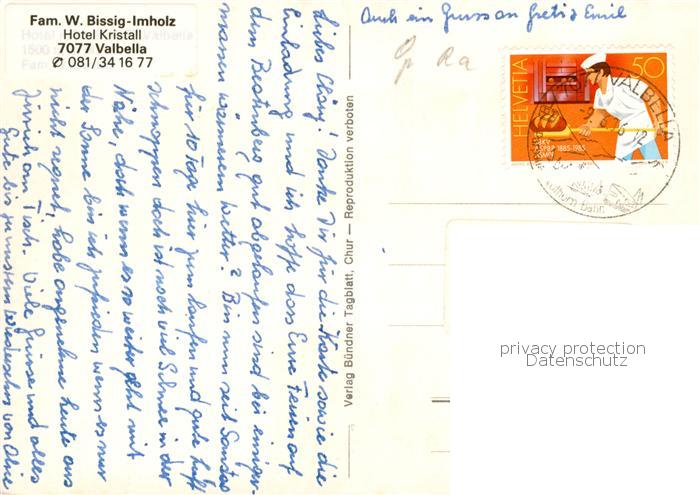 Fam. W. Bissig-Imholz
Hotel Kristall
7077 Valbella
✆ 081/34 16 77
Auch ein Gruss an Greti & Emil
Liebs Cläry! Danke Dir für die Karte sowie die
Einladung und ich hoffe dass Eure Ferien auf
dem Beatenberg gut abgelaufen sind bei einiger-
massen warmem Wetter? Bin nun seit Samstag
für 10 Tage hier zum laufen und gute Luft
schnappen doch ist noch viel Schnee in der
Nähe, doch wenn es so weiter geht mit
der Sonne bin ich zufrieden wenn es nur
nicht regnet, habe angenehme Leute aus
Zürich am Tisch. Viele Grüsse und alles
Gute bis zum Wiedersehn von Alice
Verlag Bündner Tagblatt, Chur — Reproduktion verboten
HELVETIA
50
1885-1985
VALBELLA
privacy protection
Datenschutz